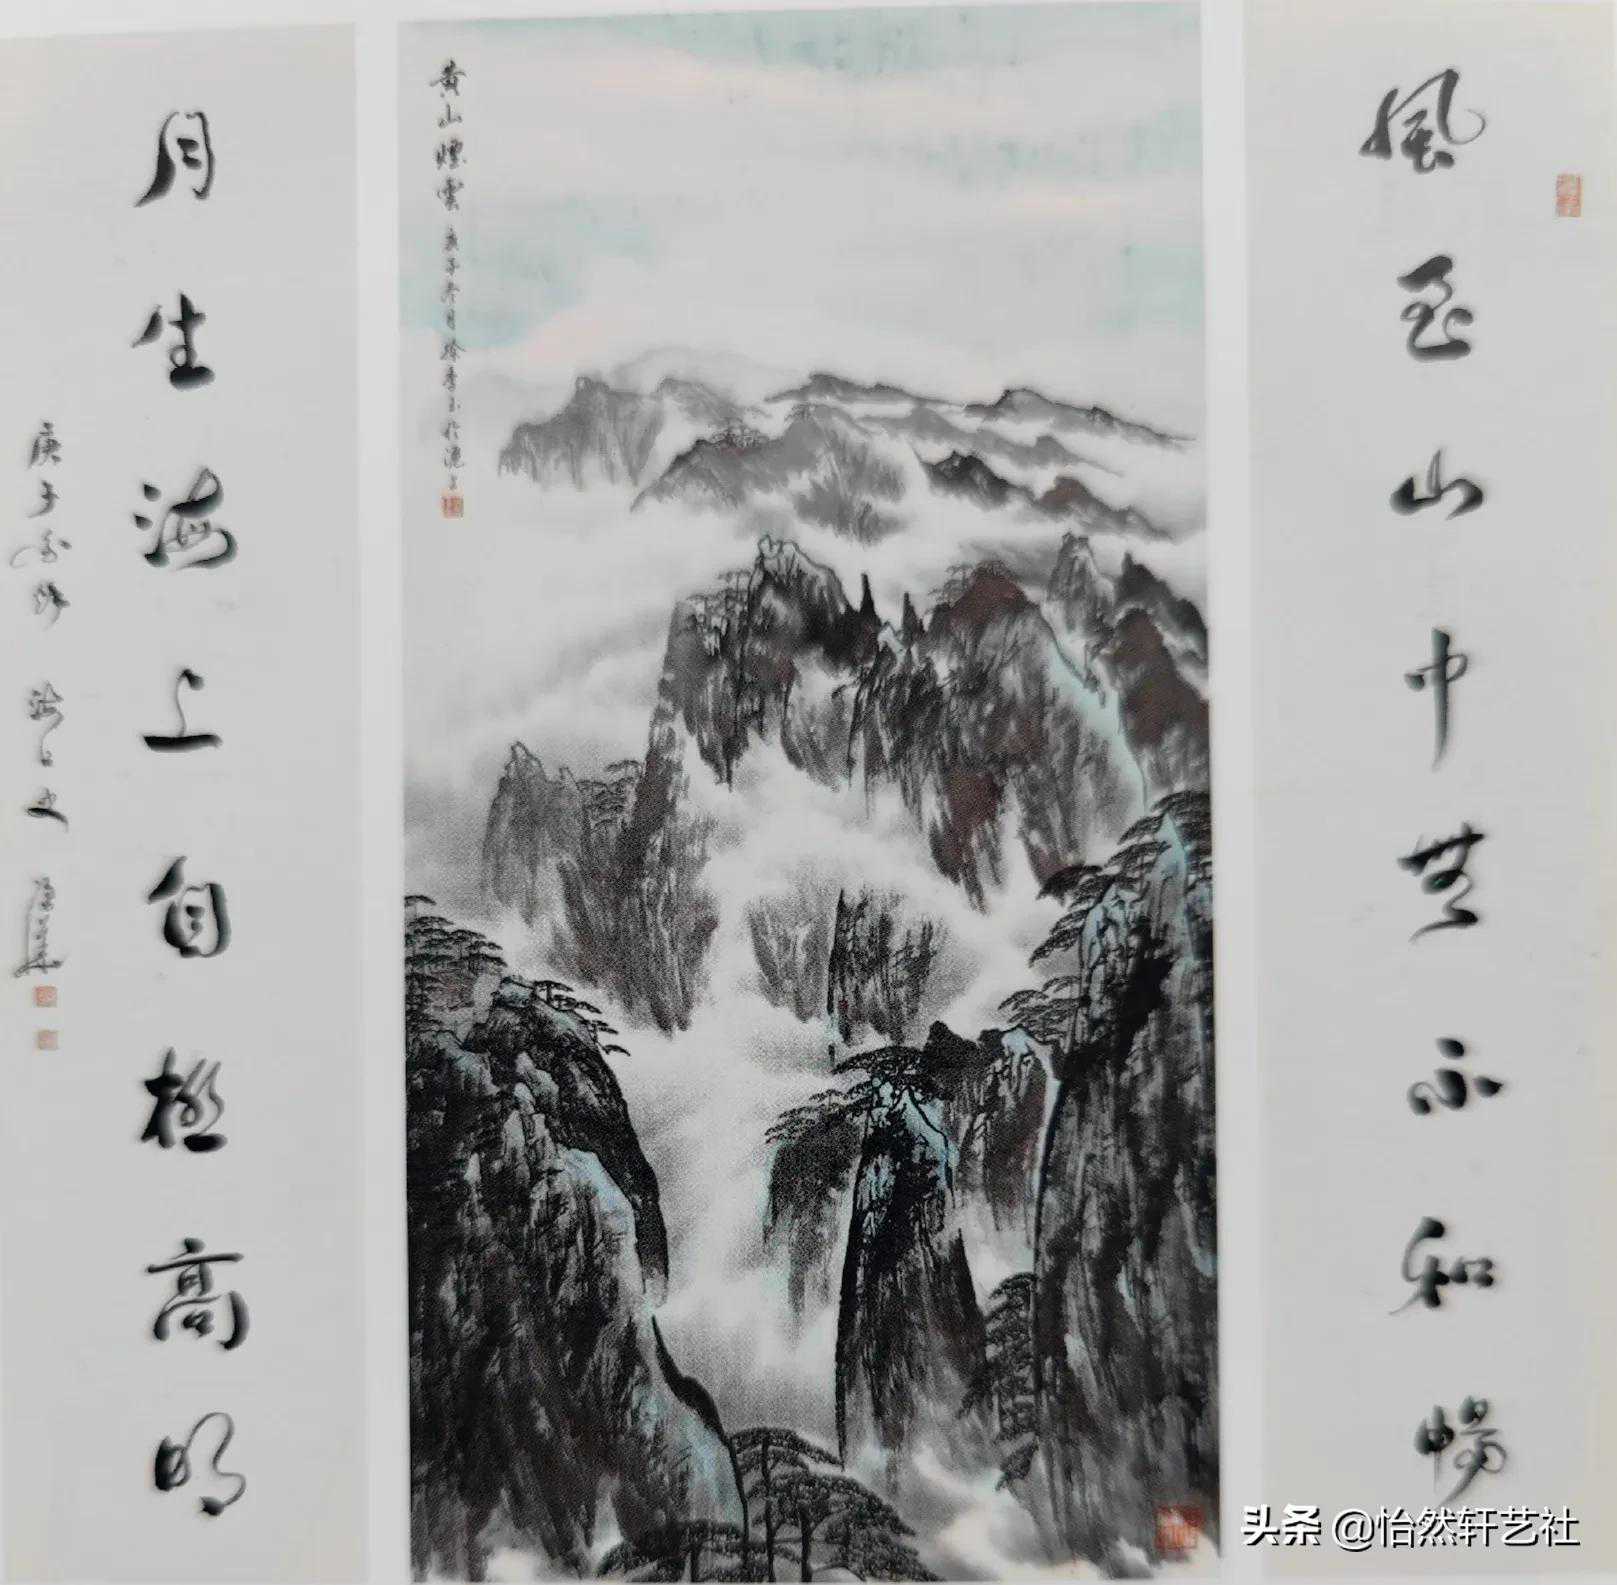 風至山中無不和暢
黄山煙雲 庚子冬月 於滬上
月生海上自極高明
庚子
头条 @怡然轩艺社